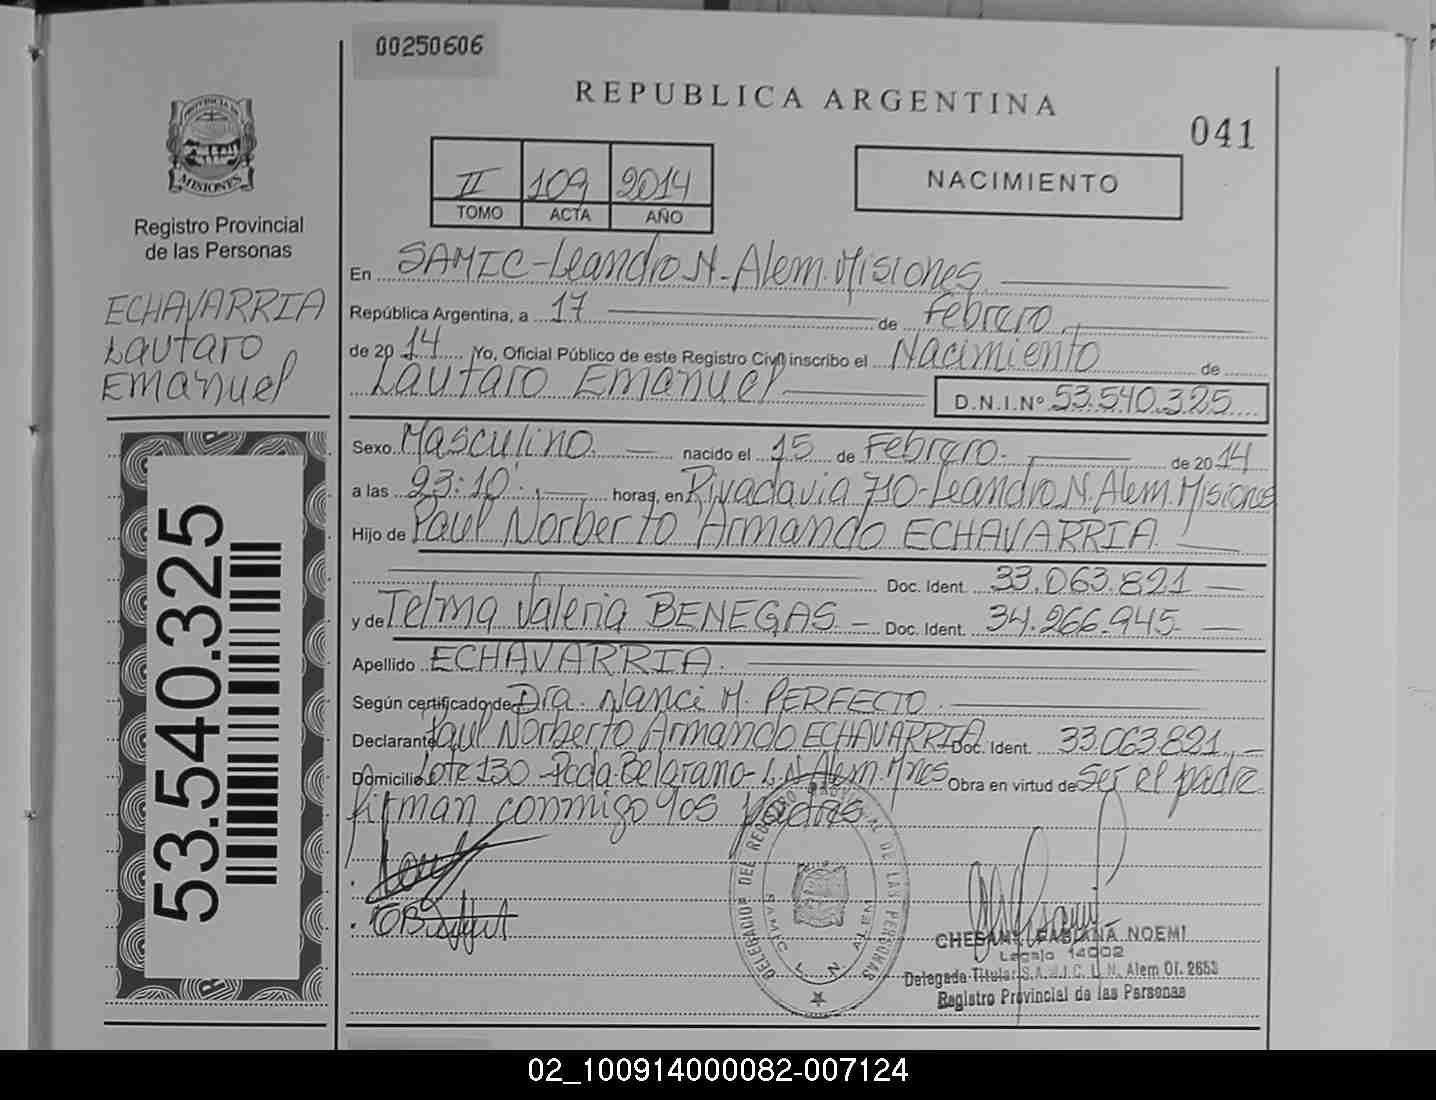 00250606
REPUBLICA ARGENTINA
041
PROVINCIA DE
MISIONES
Registro Provincial
de las Personas
II 109 2014
TOMO ACTA AÑO
NACIMIENTO
ECHAVARRIA
Lautaro
Emanuel
53.540.325
En SAMIC-Leandro N. Alem. Misiones
República Argentina, a 17 de Febrero
de 2014 Yo, Oficial Público de este Registro Civil inscribo el Nacimiento de
Lautaro Emanuel D.N.I.Nº 53.540.325
Sexo Masculino. nacido el 15 de Febrero. de 2014
a las 23:10 horas, en Rivadavia 710-Leandro N. Alem. Misiones
Hijo de Paul Norberto Armando ECHAVARRIA
Doc. Ident. 33.063.821
y de Telma Valeria BENEGAS - Doc. Ident. 34.266.945
Apellido ECHAVARRIA.
Según certificado de Dra. Nanci M. PERFECTO.
Declarante Paul Norberto Armando ECHAVARRIA Doc. Ident. 33.063.821
Domicilio Lote 130 - Pcda. Belgrano - L.N. Alem. Mnes Obra en virtud de ser el padre.
firman conmigo los Padres
DELEGACION DEL REGISTRO PROVINCIAL DE LAS PERSONAS
SAMIC L. N. ALEM
FABIANA NOEMI
Legajo 14002
Delegada Titular S.A.M.I.C. L. N. Alem Of. 2653
Registro Provincial de las Personas
02_100914000082-007124